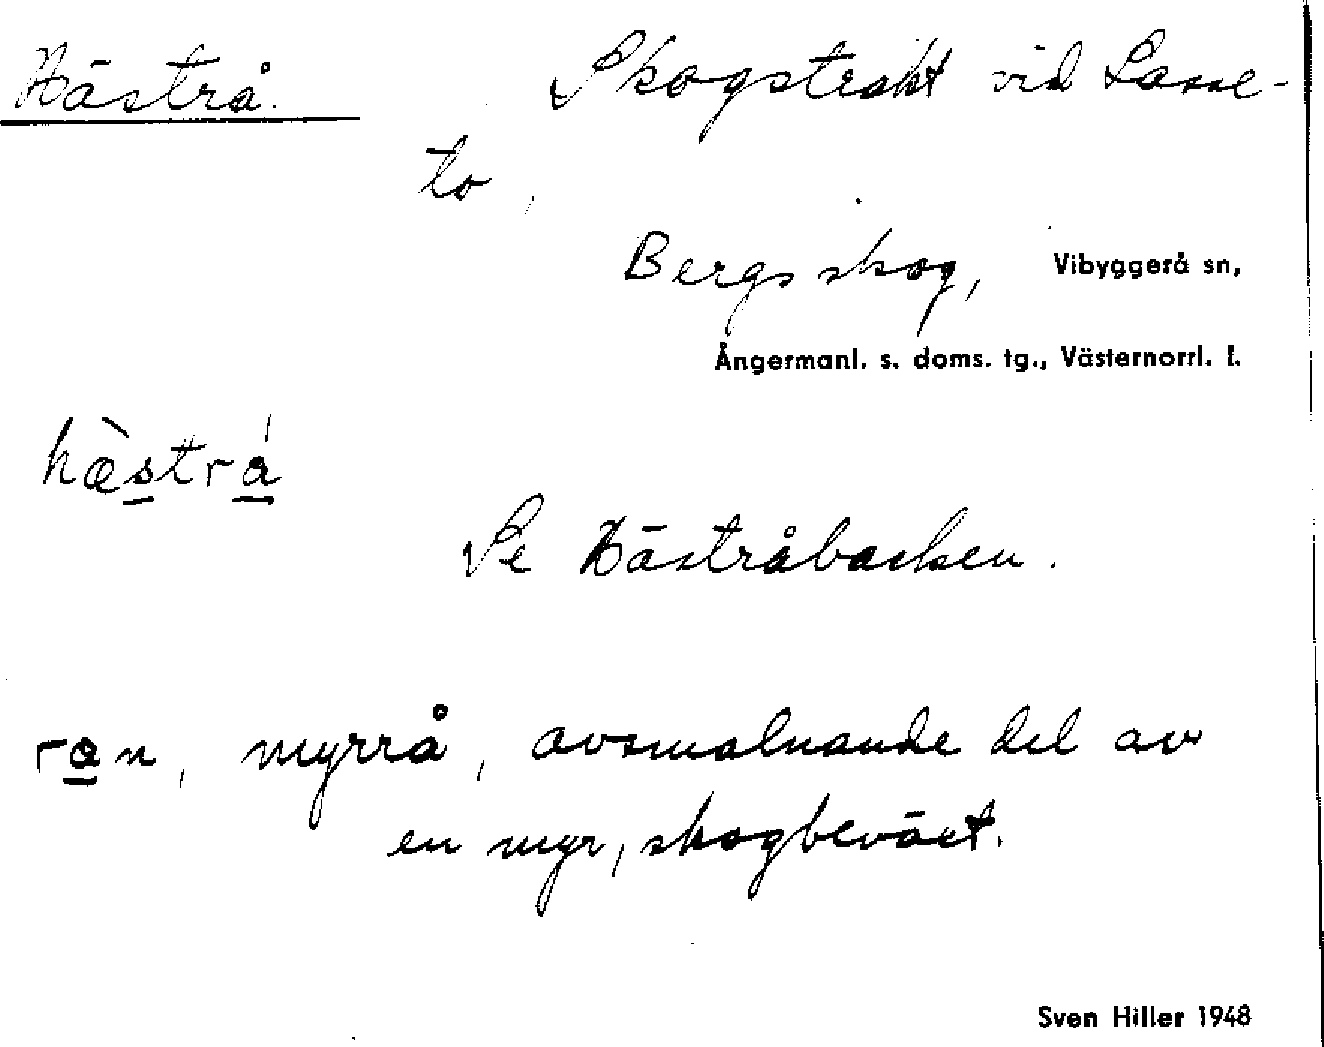 Hästrå. Skogstrakt vid Lasse-
to,
Bergs skog, Vibyggerå sn,
Ångermanl. s. doms. tg., Västernorrl. l.
hæ̀strá
Se Hästråbacken.
ran, myrrå, avsmalnande del av
en myr, skogbeväxt.
Sven Hiller 1948